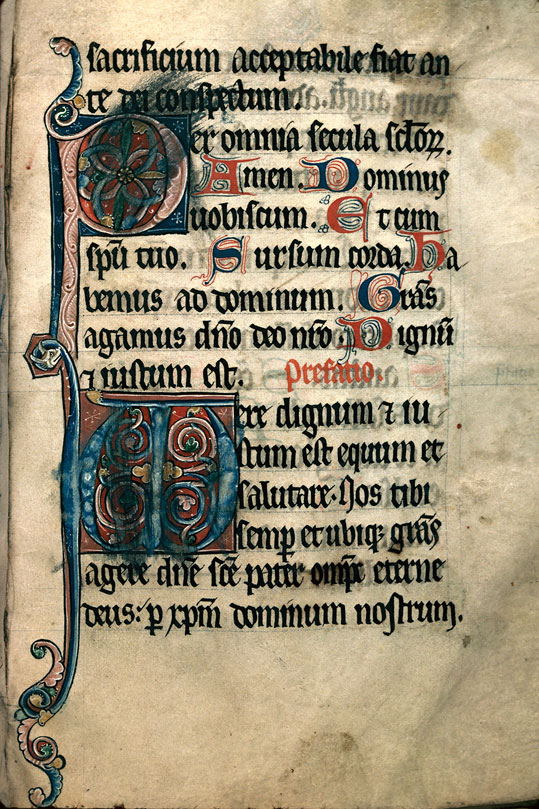 sacrificium acceptabile fiat an
te dei conspectum.
Per omnia secula scl'oꝝ.
Amen. Dominus
uobiscum. Et cum
sp̄u tuo. Sursum corda. Ha
bemus ad dominum. Gr̄as
agamus dn̄o deo nr̄o. Dignū
⁊ iustum est. Prefatio.
Vere dignum ⁊ iu
stum est equum et
salutare. Nos tibi
semꝑ et ubiqꝫ gr̄as
agere dn̄e sc̄e pater omp̄s eterne
deus: ꝑ xp̄m dominum nostrum.